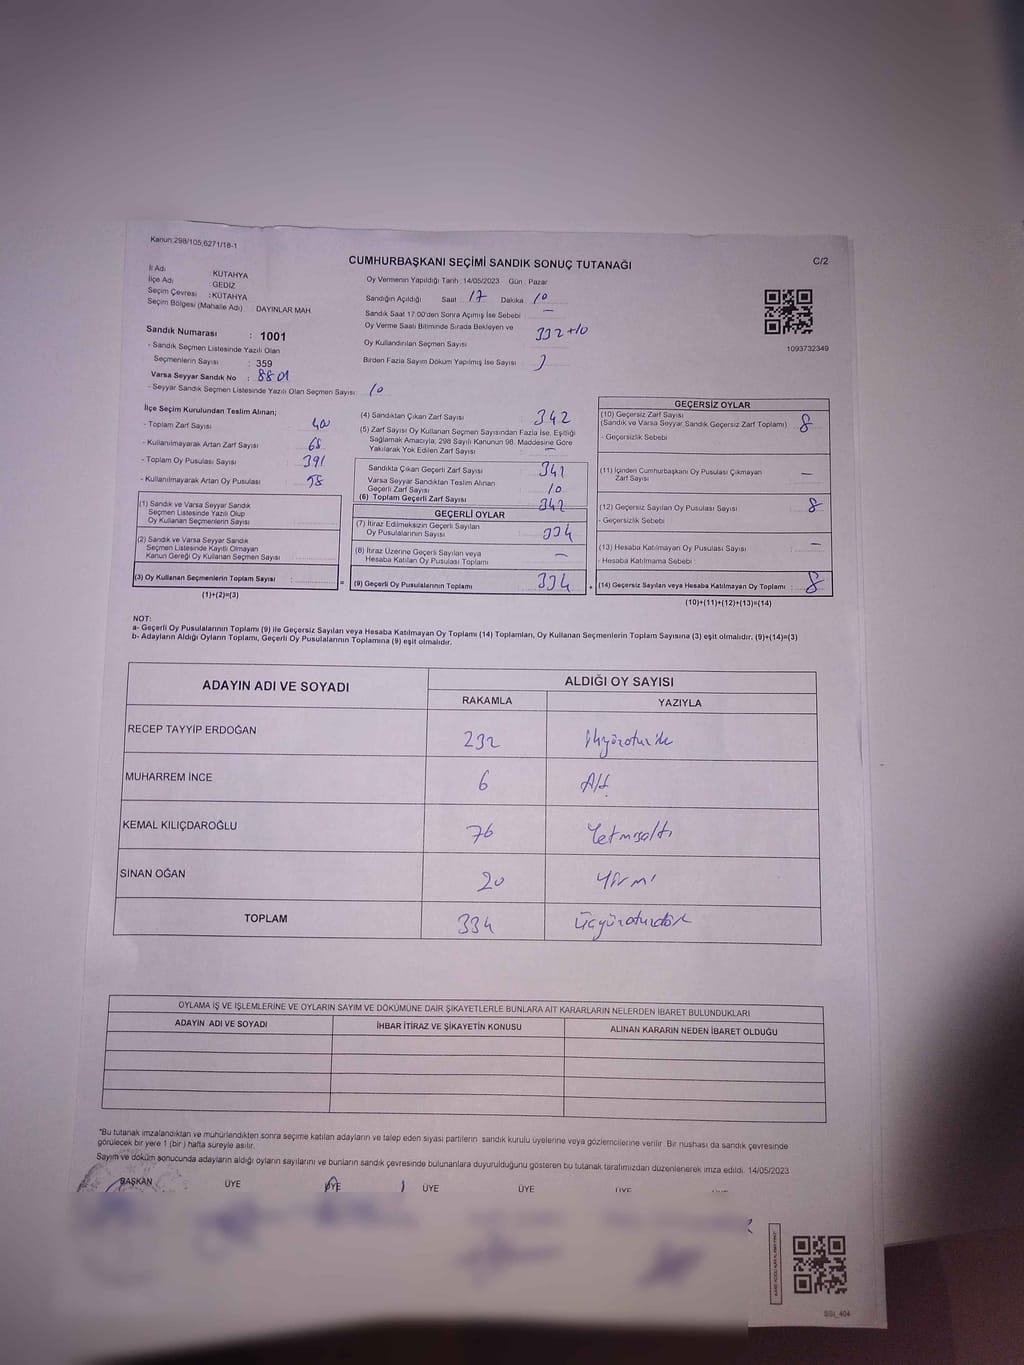 Kanun:298/105,6271/18-1
CUMHURBAŞKANI SEÇİMİ SANDIK SONUÇ TUTANAĞI
C/2
İl Adı : KÜTAHYA
İlçe Adı : GEDİZ
Seçim Çevresi : KÜTAHYA
Seçim Bölgesi (Mahalle Adı) DAYINLAR MAH.
Sandık Numarası : 1001
- Sandık Seçmen Listesinde Yazılı Olan
Seçmenlerin Sayısı : 359
Varsa Seyyar Sandık No : 8801
- Seyyar Sandık Seçmen Listesinde Yazılı Olan Seçmen Sayısı: 10
Oy Vermenin Yapıldığı Tarih :14/05/2023 Gün : Pazar
Sandığın Açıldığı Saat : 17 Dakika : 10
Sandık Saat 17:00'den Sonra Açımış İse Sebebi : —
Oy Verme Saati Bitiminde Sırada Bekleyen ve
Oy Kullandırılan Seçmen Sayısı 332+10
Birden Fazla Sayım Döküm Yapılmış İse Sayısı :
1093732349
İlçe Seçim Kurulundan Teslim Alınan;
- Toplam Zarf Sayısı : 400
- Kullanılmayarak Artan Zarf Sayısı : 68
- Toplam Oy Pusulası Sayısı : 391
- Kullanılmayarak Artan Oy Pusulası : 58
(1) Sandık ve Varsa Seyyar Sandık
Seçmen Listesinde Yazılı Olup
Oy Kullanan Seçmenlerin Sayısı
(2) Sandık ve Varsa Seyyar Sandık
Seçmen Listesinde Kayıtlı Olmayan
Kanun Gereği Oy Kullanan Seçmen Sayısı :
(3) Oy Kullanan Seçmenlerin Toplam Sayısı :
(1)+(2)=(3)
(4) Sandıktan Çıkan Zarf Sayısı : 342
(5) Zarf Sayısı Oy Kullanan Seçmen Sayısından Fazla İse, Eşitliği
Sağlamak Amacıyla; 298 Sayılı Kanunun 98. Maddesine Göre
Yakılarak Yok Edilen Zarf Sayısı : —
Sandıkta Çıkan Geçerli Zarf Sayısı 342
Varsa Seyyar Sandıktan Teslim Alınan
Geçerli Zarf Sayısı 10
(6) Toplam Geçerli Zarf Sayısı 342
GEÇERLİ OYLAR
(7) İtiraz Edilmeksizin Geçerli Sayılan
Oy Pusulalarının Sayısı : 334
(8) İtiraz Üzerine Geçerli Sayılan veya
Hesaba Katılan Oy Pusulası Toplamı : —
= (9) Geçerli Oy Pusulalarının Toplamı : 334 +
GEÇERSİZ OYLAR
(10) Geçersiz Zarf Sayısı
(Sandık ve Varsa Seyyar Sandık Geçersiz Zarf Toplamı) : 8
- Geçersizlik Sebebi :
(11) İçinden Cumhurbaşkanı Oy Pusulası Çıkmayan
Zarf Sayısı : —
(12) Geçersiz Sayılan Oy Pusulası Sayısı : 8
- Geçersizlik Sebebi :
(13) Hesaba Katılmayan Oy Pusulası Sayısı : —
- Hesaba Katılmama Sebebi :
(14) Geçersiz Sayılan veya Hesaba Katılmayan Oy Toplamı : 8
(10)+(11)+(12)+(13)=(14)
NOT:
a- Geçerli Oy Pusulalarının Toplamı (9) ile Geçersiz Sayılan veya Hesaba Katılmayan Oy Toplamı (14) Toplamları, Oy Kullanan Seçmenlerin Toplam Sayısına (3) eşit olmalıdır. (9)+(14)=(3)
b- Adayların Aldığı Oyların Toplamı, Geçerli Oy Pusulalarının Toplamına (9) eşit olmalıdır.
ADAYIN ADI VE SOYADI ALDIĞI OY SAYISI
RAKAMLA YAZIYLA
RECEP TAYYİP ERDOĞAN 232 İkiyüzotuziki
MUHARREM İNCE 6 Altı
KEMAL KILIÇDAROĞLU 76 Yetmişaltı
SİNAN OĞAN 20 Yirmi
TOPLAM 334 Üçyüzotuzdört
OYLAMA İŞ VE İŞLEMLERİNE VE OYLARIN SAYIM VE DÖKÜMÜNE DAİR ŞİKAYETLERLE BUNLARA AİT KARARLARIN NELERDEN İBARET BULUNDUKLARI
ADAYIN ADI VE SOYADI İHBAR İTİRAZ VE ŞİKAYETİN KONUSU ALINAN KARARIN NEDEN İBARET OLDUĞU
*Bu tutanak imzalandıktan ve mühürlendikten sonra seçime katılan adayların ve talep eden siyasi partilerin sandık kurulu üyelerine veya gözlemcilerine verilir. Bir nushası da sandık çevresinde
görülecek bir yere 1 (bir) hafta süreyle asılır.
Sayım ve döküm sonucunda adayların aldığı oyların sayılarını ve bunların sandık çevresinde bulunanlara duyurulduğunu gösteren bu tutanak tarafımızdan düzenlenerek imza edildi. 14/05/2023
BAŞKAN ÜYE ÜYE ÜYE ÜYE ÜYE
SSI_404